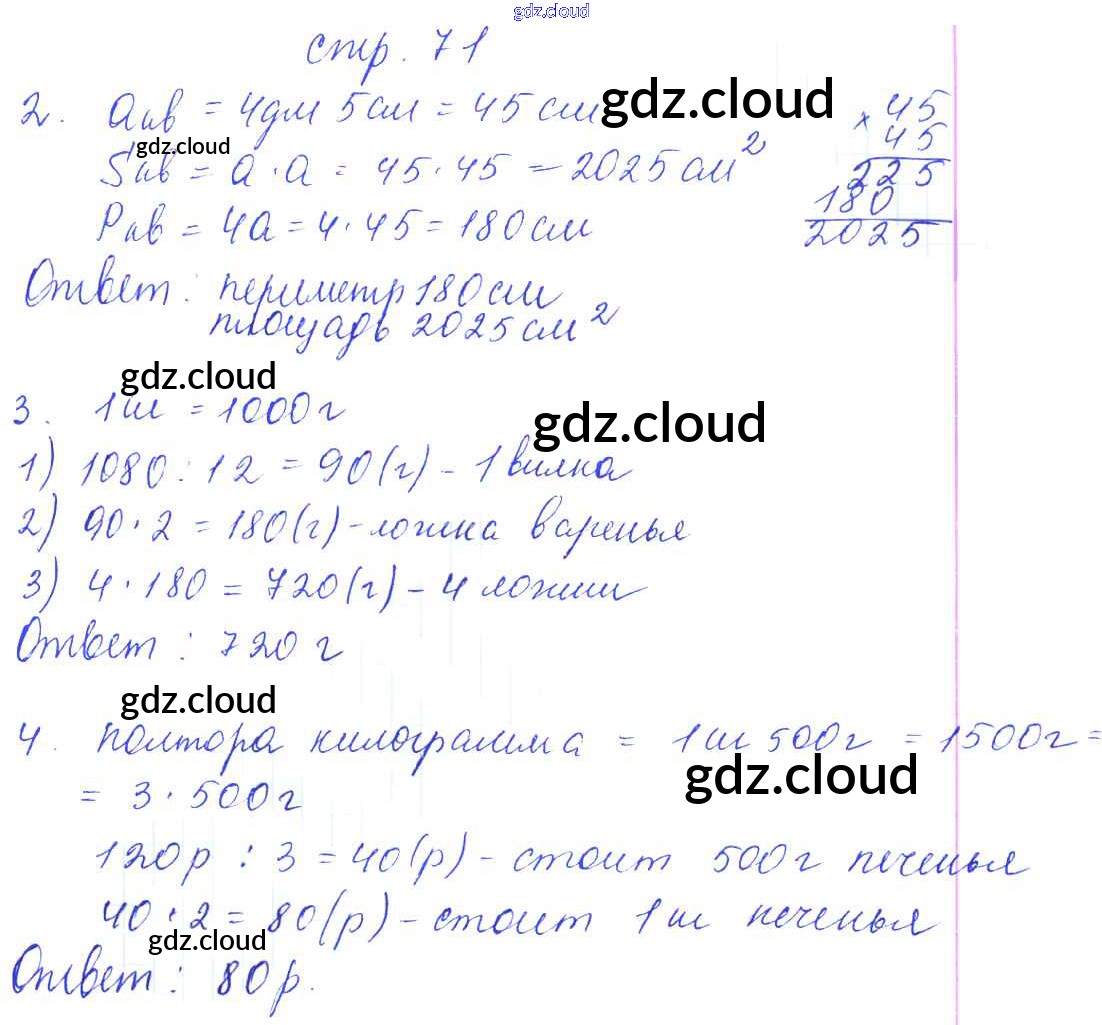 gdz.cloud
стр. 71
2. aкв = 4дм 5см = 45 см gdz.cloud
gdz.cloud
Sкв = a · a = 45 · 45 = 2025 см²
Pкв = 4a = 4 · 45 = 180 см
× 45
45
225
180
2025
Ответ: периметр 180 см
площадь 2025 см²
gdz.cloud
3. 1 кг = 1000 г
gdz.cloud
1) 1080 : 12 = 90 (г) – 1 вилка
2) 90 · 2 = 180 (г) – ложка варенья
3) 4 · 180 = 720 (г) – 4 ложки
Ответ: 720 г
gdz.cloud
4. Полтора килограмма = 1 кг 500 г = 1500 г =
gdz.cloud
= 3 · 500 г
120 р : 3 = 40 (р) – стоит 500 г печенья
40 · 2 = 80 (р) – стоит 1 кг печенья
gdz.cloud
Ответ: 80 р.